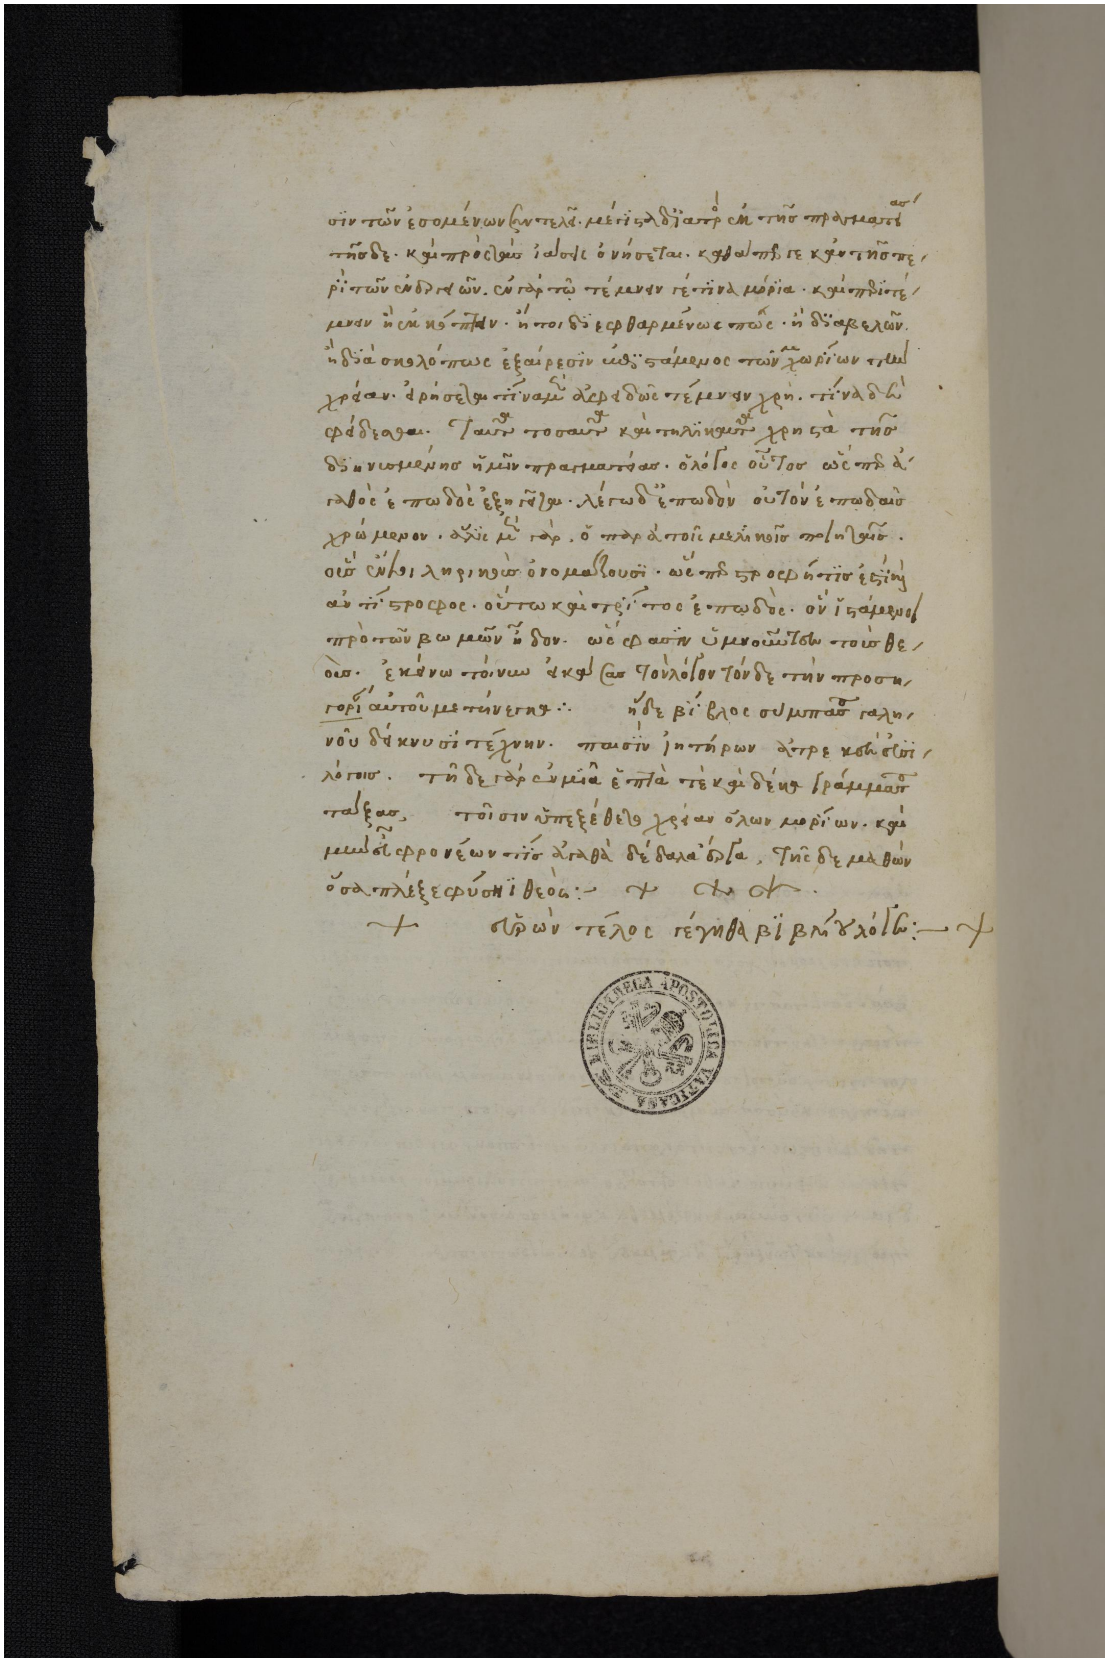 σϊν τῶν ἐσομένων συντελεῖ. μέγιϛα δϊατρὸς ἐκ τῆς πραγματείας
τῆσδε. καὶ πρὸς τὰς ἰάσεις ὀνήσεται. καθάπερ γε κἀν τῆς πε
ρῒ τῶν ἐνεργειῶν. ἐν γὰρ τῶ τέμνειν γέ τϊνα μόρϊα. καὶ περϊτέ
μνειν ἢ ἐκκόπτειν. ἤτοι δϊεφθαρμένως πῶς. ἢ δϊαβελῶν.
ἢ δϊὰ σκολόπως ἐξαίρεσϊν ἐπϊϛάμενος τῶν χωρΐων τὴν
χρείαν. εὑρήσεται τΐνα μὲν ἀφειδῶς τέμνειν χρὴ. τΐνα δὲ
φείδεσθαι. Ταῦτα τοσαῦτα καὶ τηλϊκαῦτα χρηϛὰ τῆς
δϊηνισμένης ἡμῶν πραγματείας. ὁ λόγος οὗτος ὥσπερ ἀ
γαθὸς ἐπωδὸς ἐξηγεῖται. λέγω δ' ἐπωδὸν οὐ τὸν ἐπωδαῖς
χρώμενον. ἀλϊς μὲν γὰρ. ὃ παρὰ τοῖς μελικοῖς ποιηταῖς.
οὓς ἔνιοι ληρικοὺς ὀνομάζουσϊ. ὥσπερ ϛροφή τϊς ἐϛϊ καὶ
ἀντΐϛροφος. οὕτω καὶ τρΐτος ἐπωδὸς. ὃν ἱϛάμενοι
πρὸ τῶν βωμῶν ᾖδον. ὥς φασϊν ὑμνοῦντες τοὺς θε
οὺς. ἐκείνω τοίνυν εἰκάσας τὸν λόγον τόνδε τὴν προση
γορΐαν αὐτοῦ μετήνεγκα ∴ ἥδε βΐβλος σύμπασαν γαλη
νοῦ δείκνυσϊ τέχνην. πασϊν ἰητήρων ἀτρεκὲς
λόγοις. τῆδε γὰρ ἐν μϊᾶ ἑπτὰ τὲ καὶ δέκα γράμματα
τάξας. τοῖσιν ὑπεξέθετο χρείαν ὅλων μορΐων. καὶ
φρονέων τῒς ἀγαθὰ δέδαλα τῆς δε μαθὼν
ὅσα πλέξε φύσηϊ θεὸς :~ + + +
+ σὺν θεῶ τέλος γέγηθα βϊβλΐου λόγου :— +
BIBLIOTHECA APOSTOLICA VATICANA